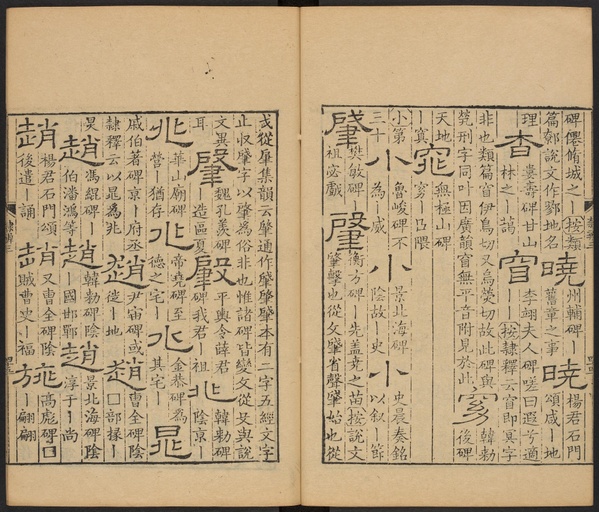 碑僊脩城之｜按類
篇郊說文作鄡地名
曉
州輔碑｜
蓄章之事
曉
楊君石門
頌咸｜地
理
杳
婁壽碑甘山
林之｜藹
窅
李翊夫人碑嗟曰遐兮適
｜｜按隸釋云窅即冥字
非也類篇窅伊鳥切又烏熒切故此碑與
刑字同叶因廣韻窅無平音附見於此
韓勑
後碑
天地
｜冥
窕
無極山碑
｜窈凸隈
小第
三十
小
魯峻碑不
為｜威
小
景北海碑
陰故｜吏
小
史晨奏銘
以叙｜節
肈
樊敏碑｜
祖宓戲
肈
衡方碑｜先蓋堯之苗按說文
肇擊也從攵肈省聲肈始也從
戈從肈集韻云肇通作肈肇肈本有二字五經文字
止收肇字以肈為俗非也惟諸碑皆變攵從殳與說
文異
耳
肈
魏孔羨碑
造區夏
肈
平輿令薛君
碑我君｜祖
兆
韓勑碑
陰京｜
兆
華山廟碑
營｜猶存
兆
帝堯碑至
德之宅｜
兆
金恭碑為
其宅｜
晁
戚伯著碑京｜府丞
隸釋云以晁為兆
趙
尹宙碑或
徙｜地
趙
曹全碑陰
口部掾｜
炅
趙
馮緄碑｜
伯潘鴻等
趙
韓勑碑陰
｜國邯鄲
趙
景北海碑陰
淳于｜尚
趙
楊君石門頌
後遣｜誦
趙
又曹全碑陰
賊曹史｜福
旐
高彪碑口
｜翩翩